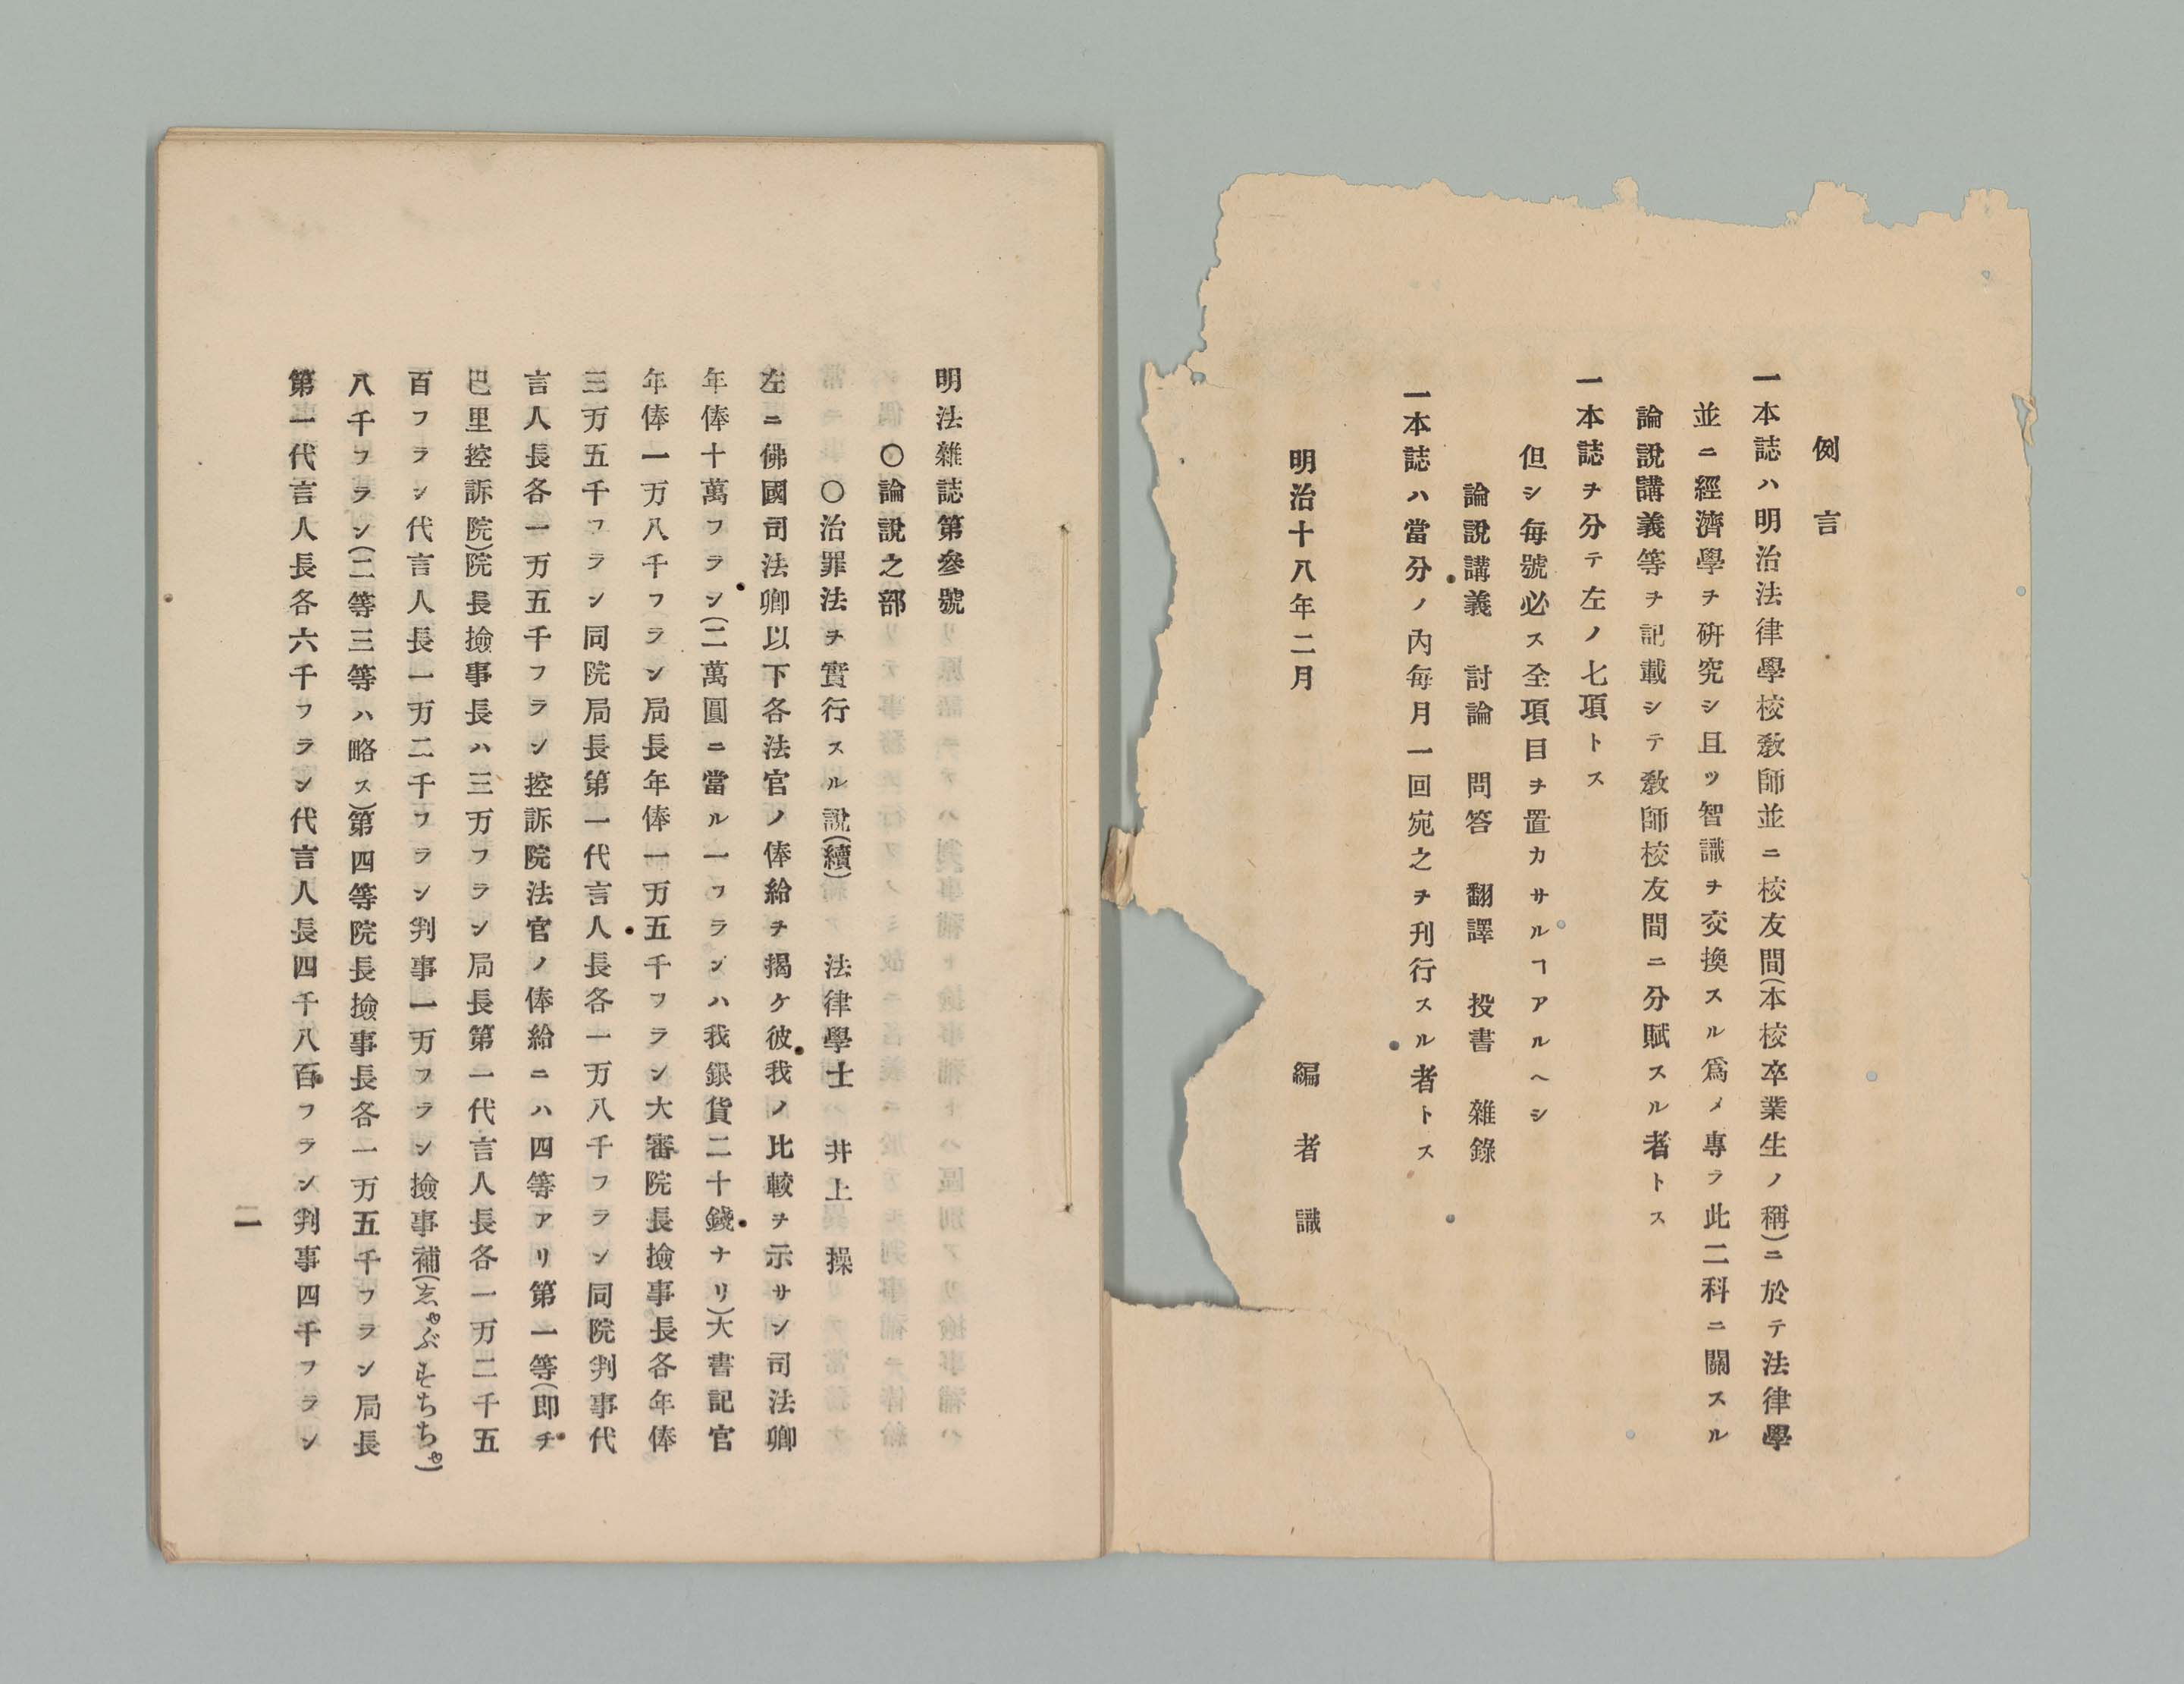 例言
一本誌ハ明治法律學校敎師並ニ校友間(本校卒業生ノ稱)ニ於テ法律學
並ニ經濟學ヲ硏究シ且ツ智識ヲ交換スル爲メ專ラ此二科ニ關スル
論說講義等ヲ記載シテ敎師校友間ニ分賦スル者トス
一本誌ヲ分テ左ノ七項トス
但シ每號必ス全項目ヲ置カサルヿアルヘシ
論說講義 討論 問答 翻譯 投書 雜錄
一本誌ハ當分ノ內每月一回宛之ヲ刊行スル者トス
明治十八年二月
編者識
明法雜誌第參號
〇論說之部
〇治罪法ヲ實行スル說(續) 法律學士 井上操
左ニ佛國司法卿以下各法官ノ俸給ヲ揭ケ彼我ノ比較ヲ示サン司法卿
年俸十萬フラン(二萬圓ニ當ル一フランハ我銀貨二十錢ナリ)大書記官
年俸一万八千フラン局長年俸一万五千フラン大審院長撿事長各年俸
三万五千フラン同院局長第一代言人長各一万八千フラン同院判事代
言人長各一万五千フラン控訴院法官ノ俸給ニハ四等アリ第一等(即チ
巴里控訴院)院長撿事長ハ三万フラン局長第一代言人長各一万二千五
百フラン代言人長一万二千フラン判事一万フラン撿事補(ゑゃぶすちちゃ)
八千フラン(二等三等ハ略ス)第四等院長撿事長各一万五千フラン局長
第一代言人長各六千フラン代言人長四千八百フラン判事四千フラン
二